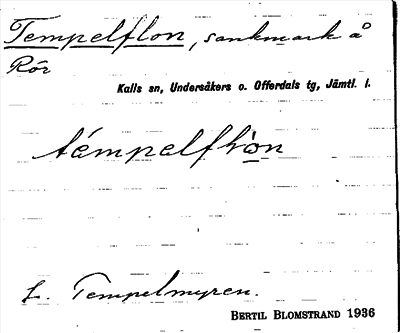 Tempelflon, sankmark å
Rör
Kalls sn, Undersåkers o. Offerdals tg, Jämtl. l.
L. Tempelmyren.
BERTIL BLOMSTRAND 1936